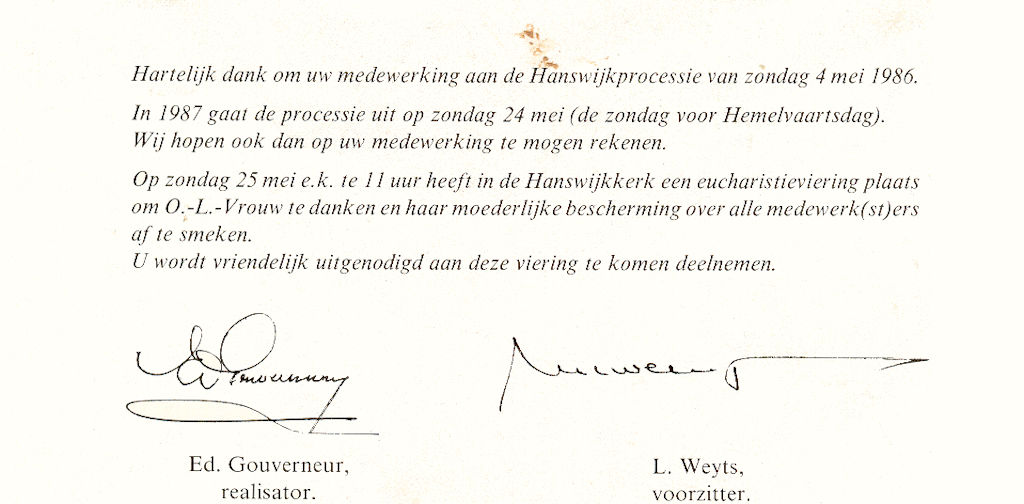 Hartelijk dank om uw medewerking aan de Hanswijkprocessie van zondag 4 mei 1986.
In 1987 gaat de processie uit op zondag 24 mei (de zondag voor Hemelvaartsdag).
Wij hopen ook dan op uw medewerking te mogen rekenen.
Op zondag 25 mei e.k. te 11 uur heeft in de Hanswijkkerk een eucharistieviering plaats
om O.-L.-Vrouw te danken en haar moederlijke bescherming over alle medewerk(st)ers
af te smeken.
U wordt vriendelijk uitgenodigd aan deze viering te komen deelnemen.
Ed. Gouverneur,
realisator.
L. Weyts,
voorzitter.